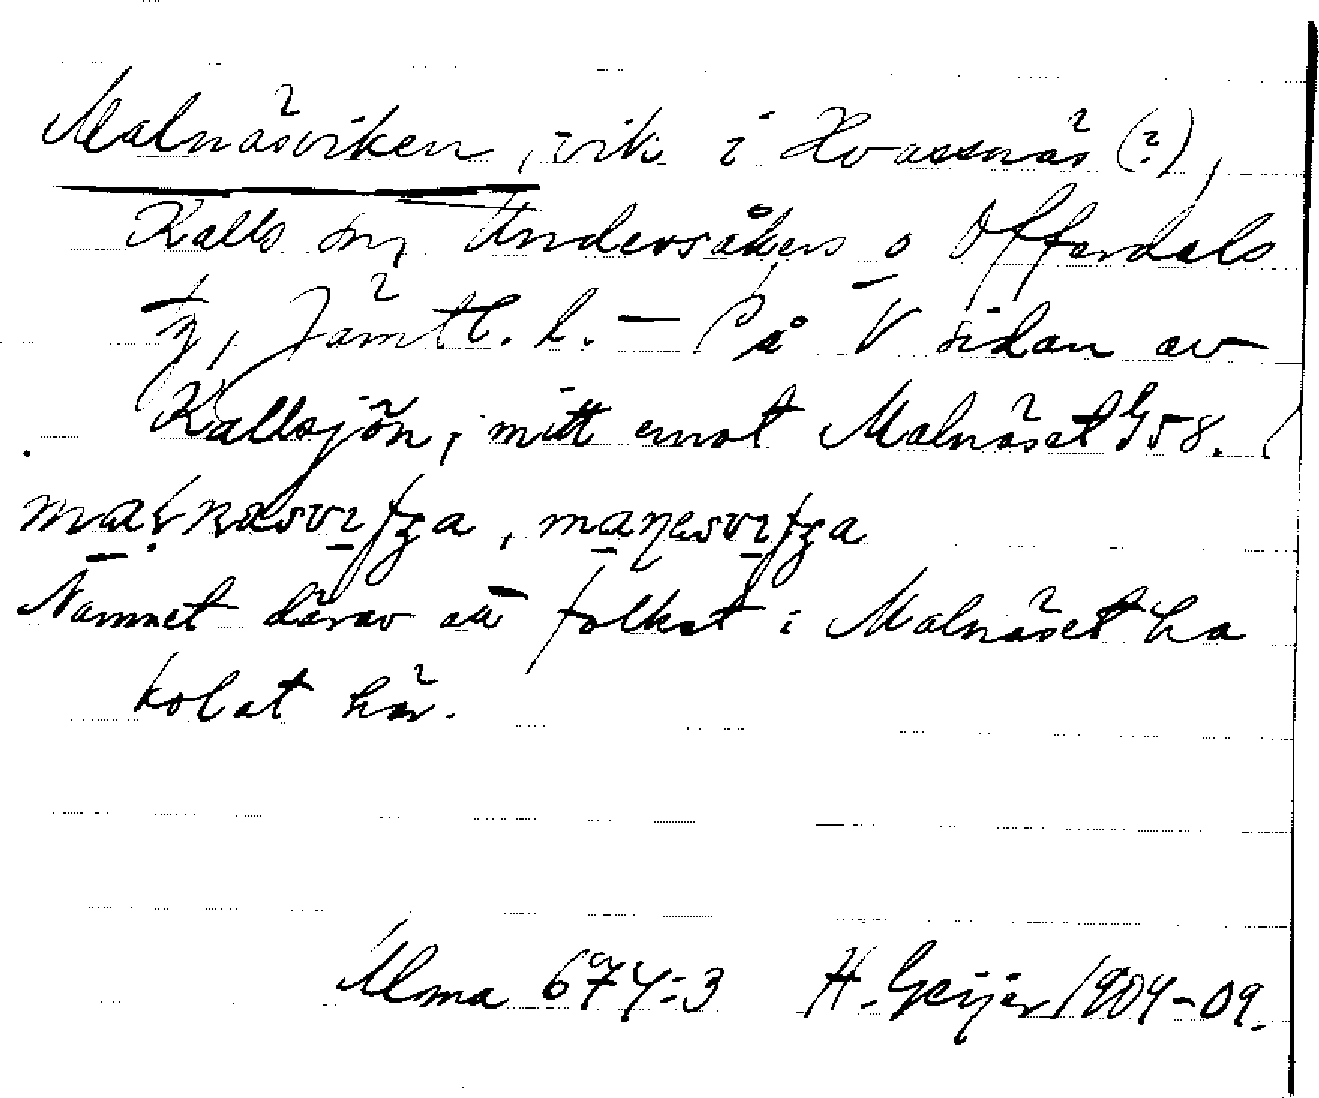 Malnäsviken, vik i Hvassnäs (?),
Kalls sn, Undersåkers o Offerdals
tg, Jämtl. l. – På V sidan av
Kallsjön, mitt emot Malnäset G58.
Namnet därav att folket i Malnäset ha
kolat här.
Ulma 674:3 H. Geijer 1904-09.